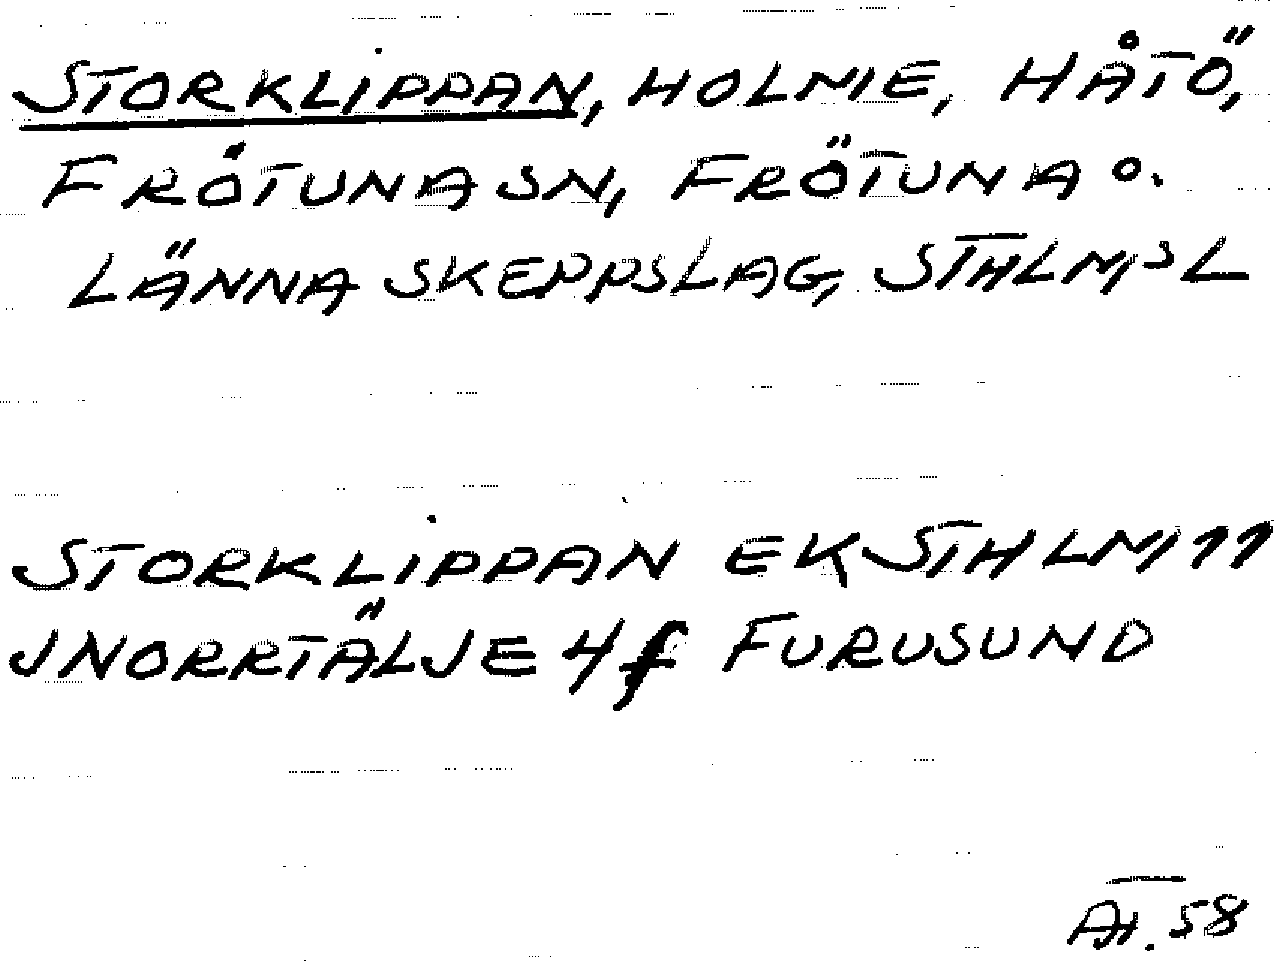 STORKLIPPAN, HOLME, HÅTÖ,
FRÖTUNA SN, FRÖTUNA O.
LÄNNA SKEPPSLAG, STHLM,S L
STORKLIPPAN EK STHLM 11
J NORRTÄLJE 4 f FURUSUND
58